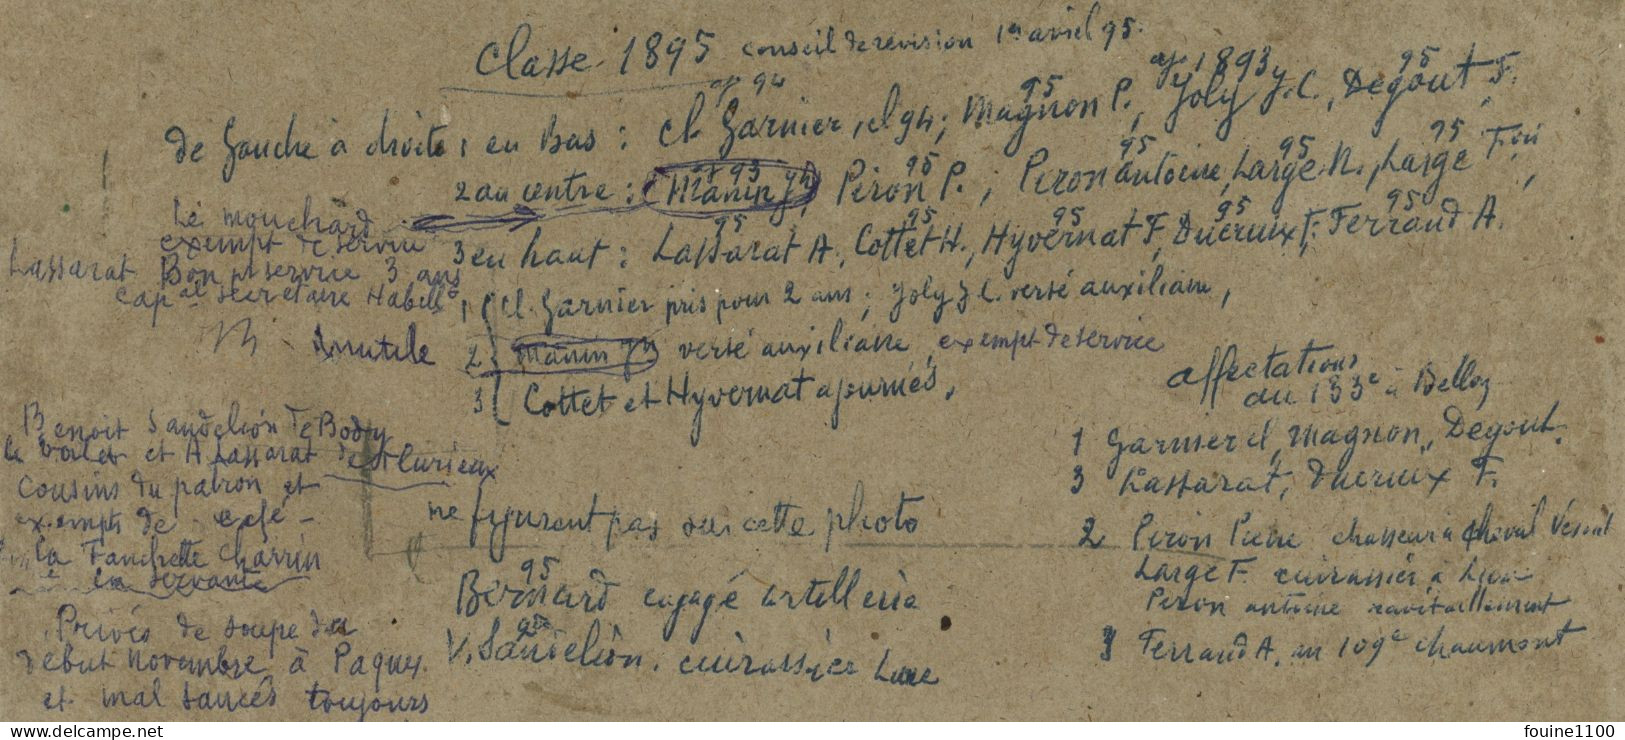 Classe 1895 conseil de révision 1er avril 95.
cl 94 95 cl 1893 95
de Gauche à droite 1 en Bas : Cl. Garnier, cl 94 ; Magnon P., Joly J.C., Degout F.
cl 93 95 95 95 95
2 au centre : (Manin Jh), Piron P. ; Piron antoine, Large N., Large Foi,
95 95 95 95 95
3 en haut : Lassarat A, Cottet H., Hyvernat F, Ducreux F, Ferraud A.
le mouchard
exempt de service
Lassarat Bon pr service 3 ans
capal secretaire Habillt
inutile
1 Cl. Garnier pris pour 2 ans ; Joly J C. versé auxiliaire,
2 Manin Jh versé auxiliaire, exempt de service
3 Cottet et Hyvernat ajournés,
Benoit Sandelion de Body
le valet et A Lassarat de Fleurieux
cousins du patron et
exempts de café -
la Fanchette Charrin
la servante
Privés de soupe du
début novembre à Paques
et mal saucés toujours
ne figurent pas sur cette photo
95
Bernard engagé artillerie
95
V. Sandelion. cuirassier Lure
affectations
au 133e à Belley
1 Garnier cl, Magnon, Degout.
3 Lassarat, Ducreux F.
2 Piron Pierre chasseur à cheval Vesoul
Large F. cuirassier à Lyon
Piron antoine ravitaillement
3 Ferraud A. au 109e chaumont
www.delcampe.net
fouine1100